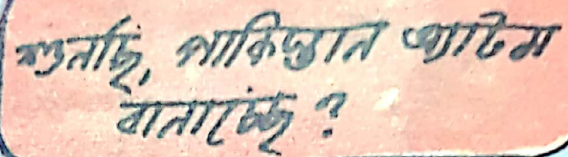 শুনছি, পাকিস্তান অ্যাটম
বানাচ্ছে ?